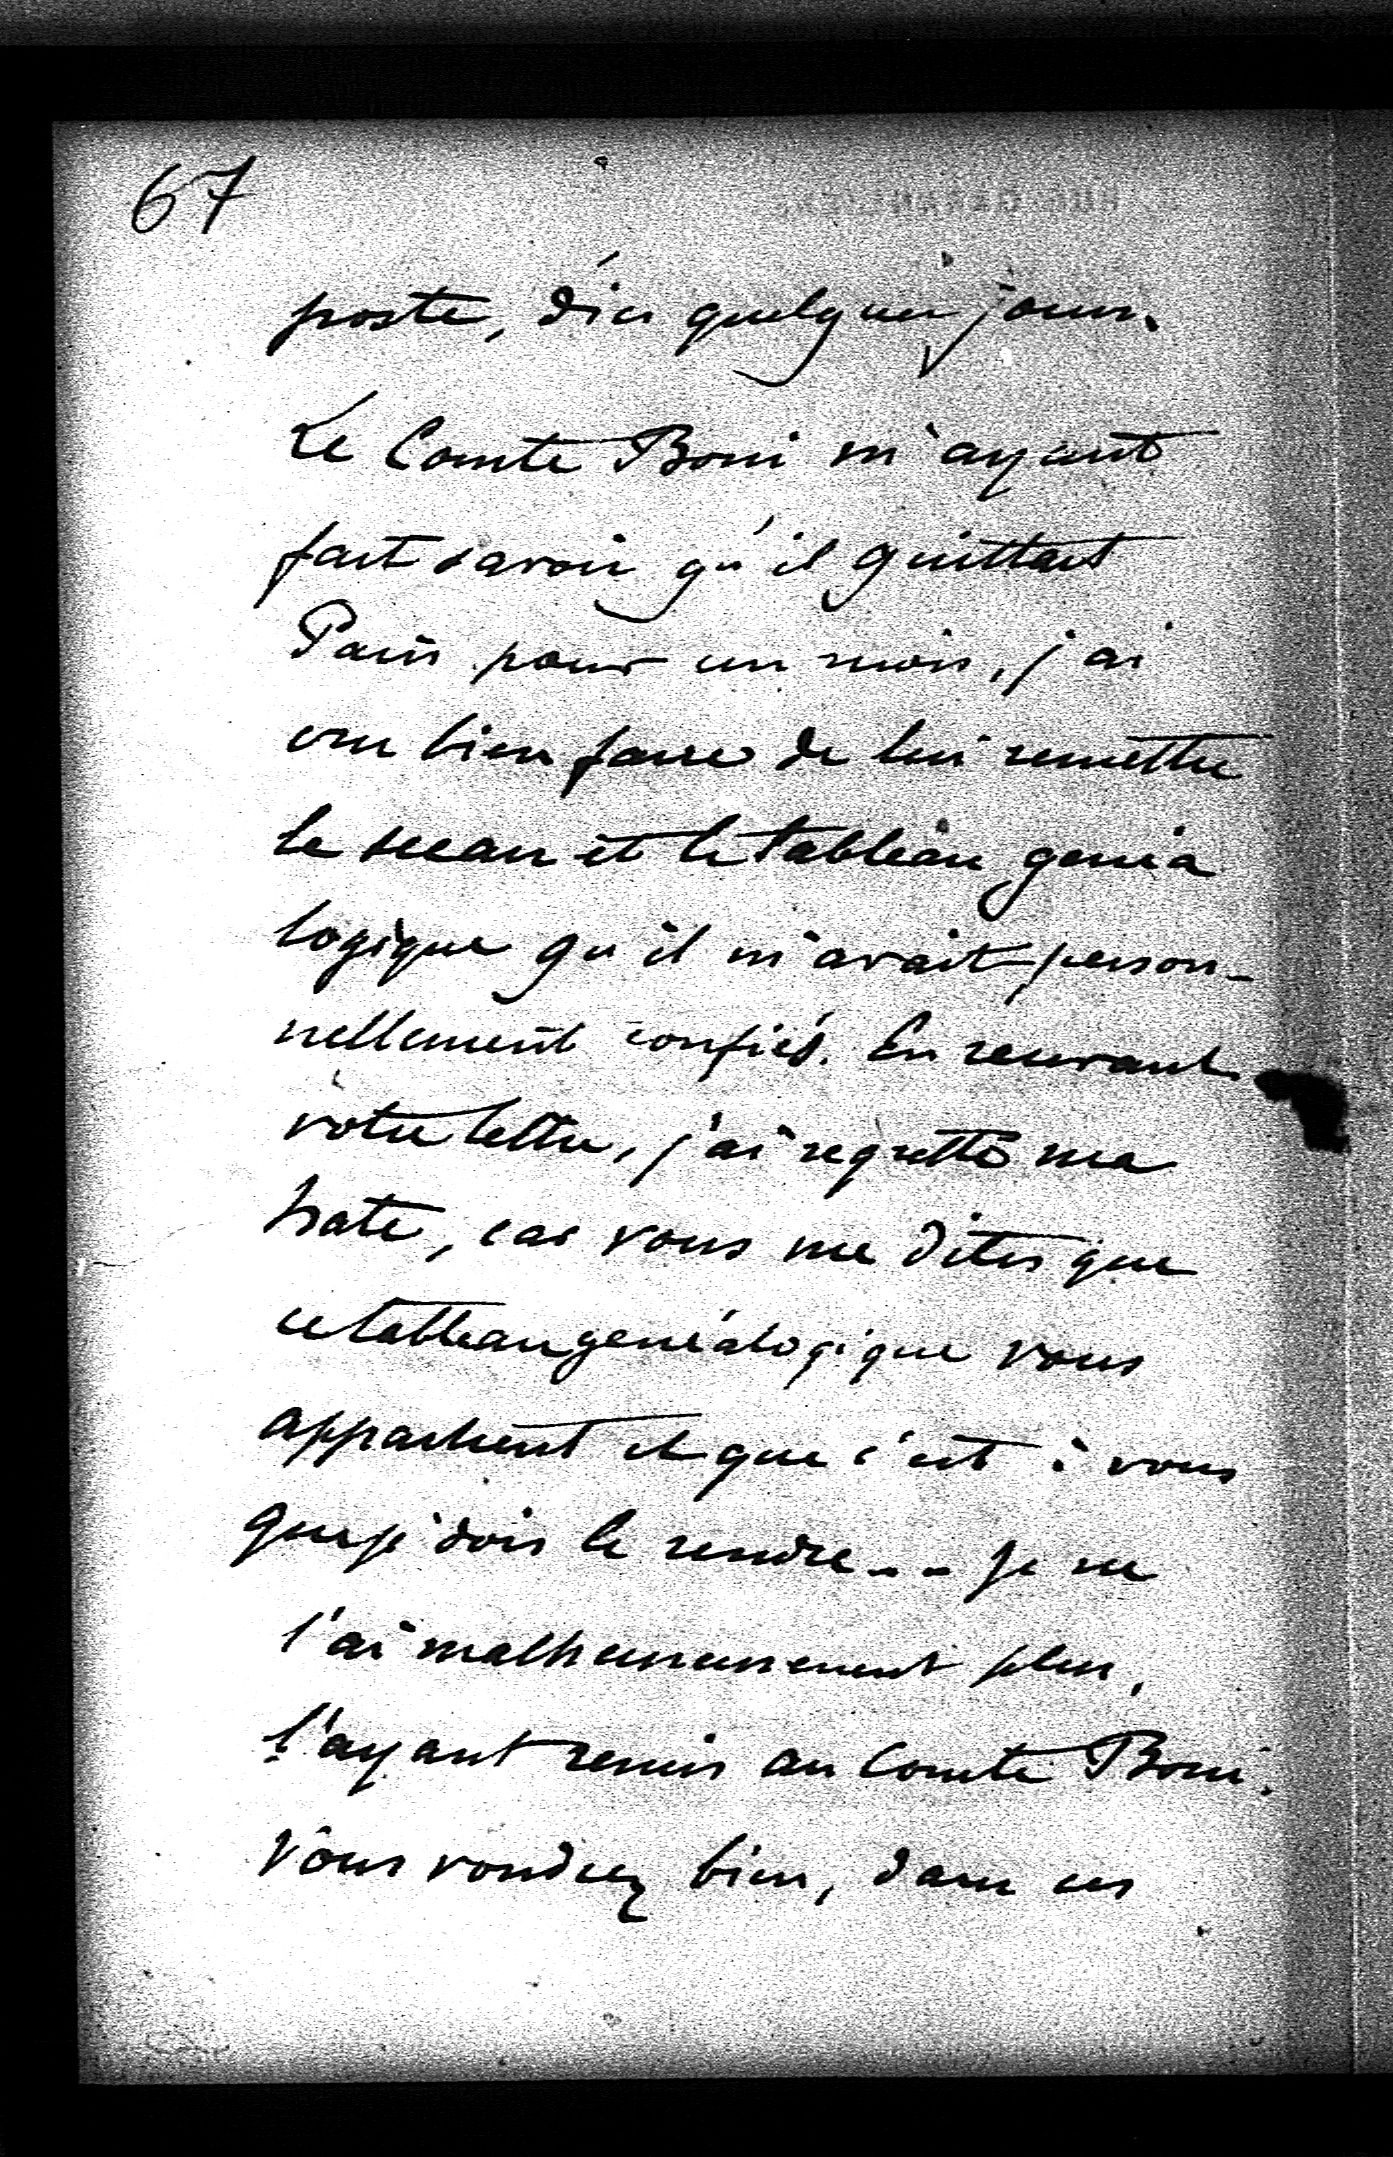 67
poste, d'ici quelques jours.
Le Comte Boni m'ayant
fait savoir qu'il quittait
Paris pour un mois, j'ai
cru bien faire de lui remettre
le sceau et le tableau généa
logique qu'il m'avait person-
nellement confiés. En recevant
votre lettre, j'ai regretté ma
hate, car vous me dites que
ce tableau généalogique vous
appartient et que c'est à vous
que je dois le rendre... Je ne
l'ai malheureusement plus,
l'ayant remis au Comte Boni.
Vous voudrez bien, dans ces